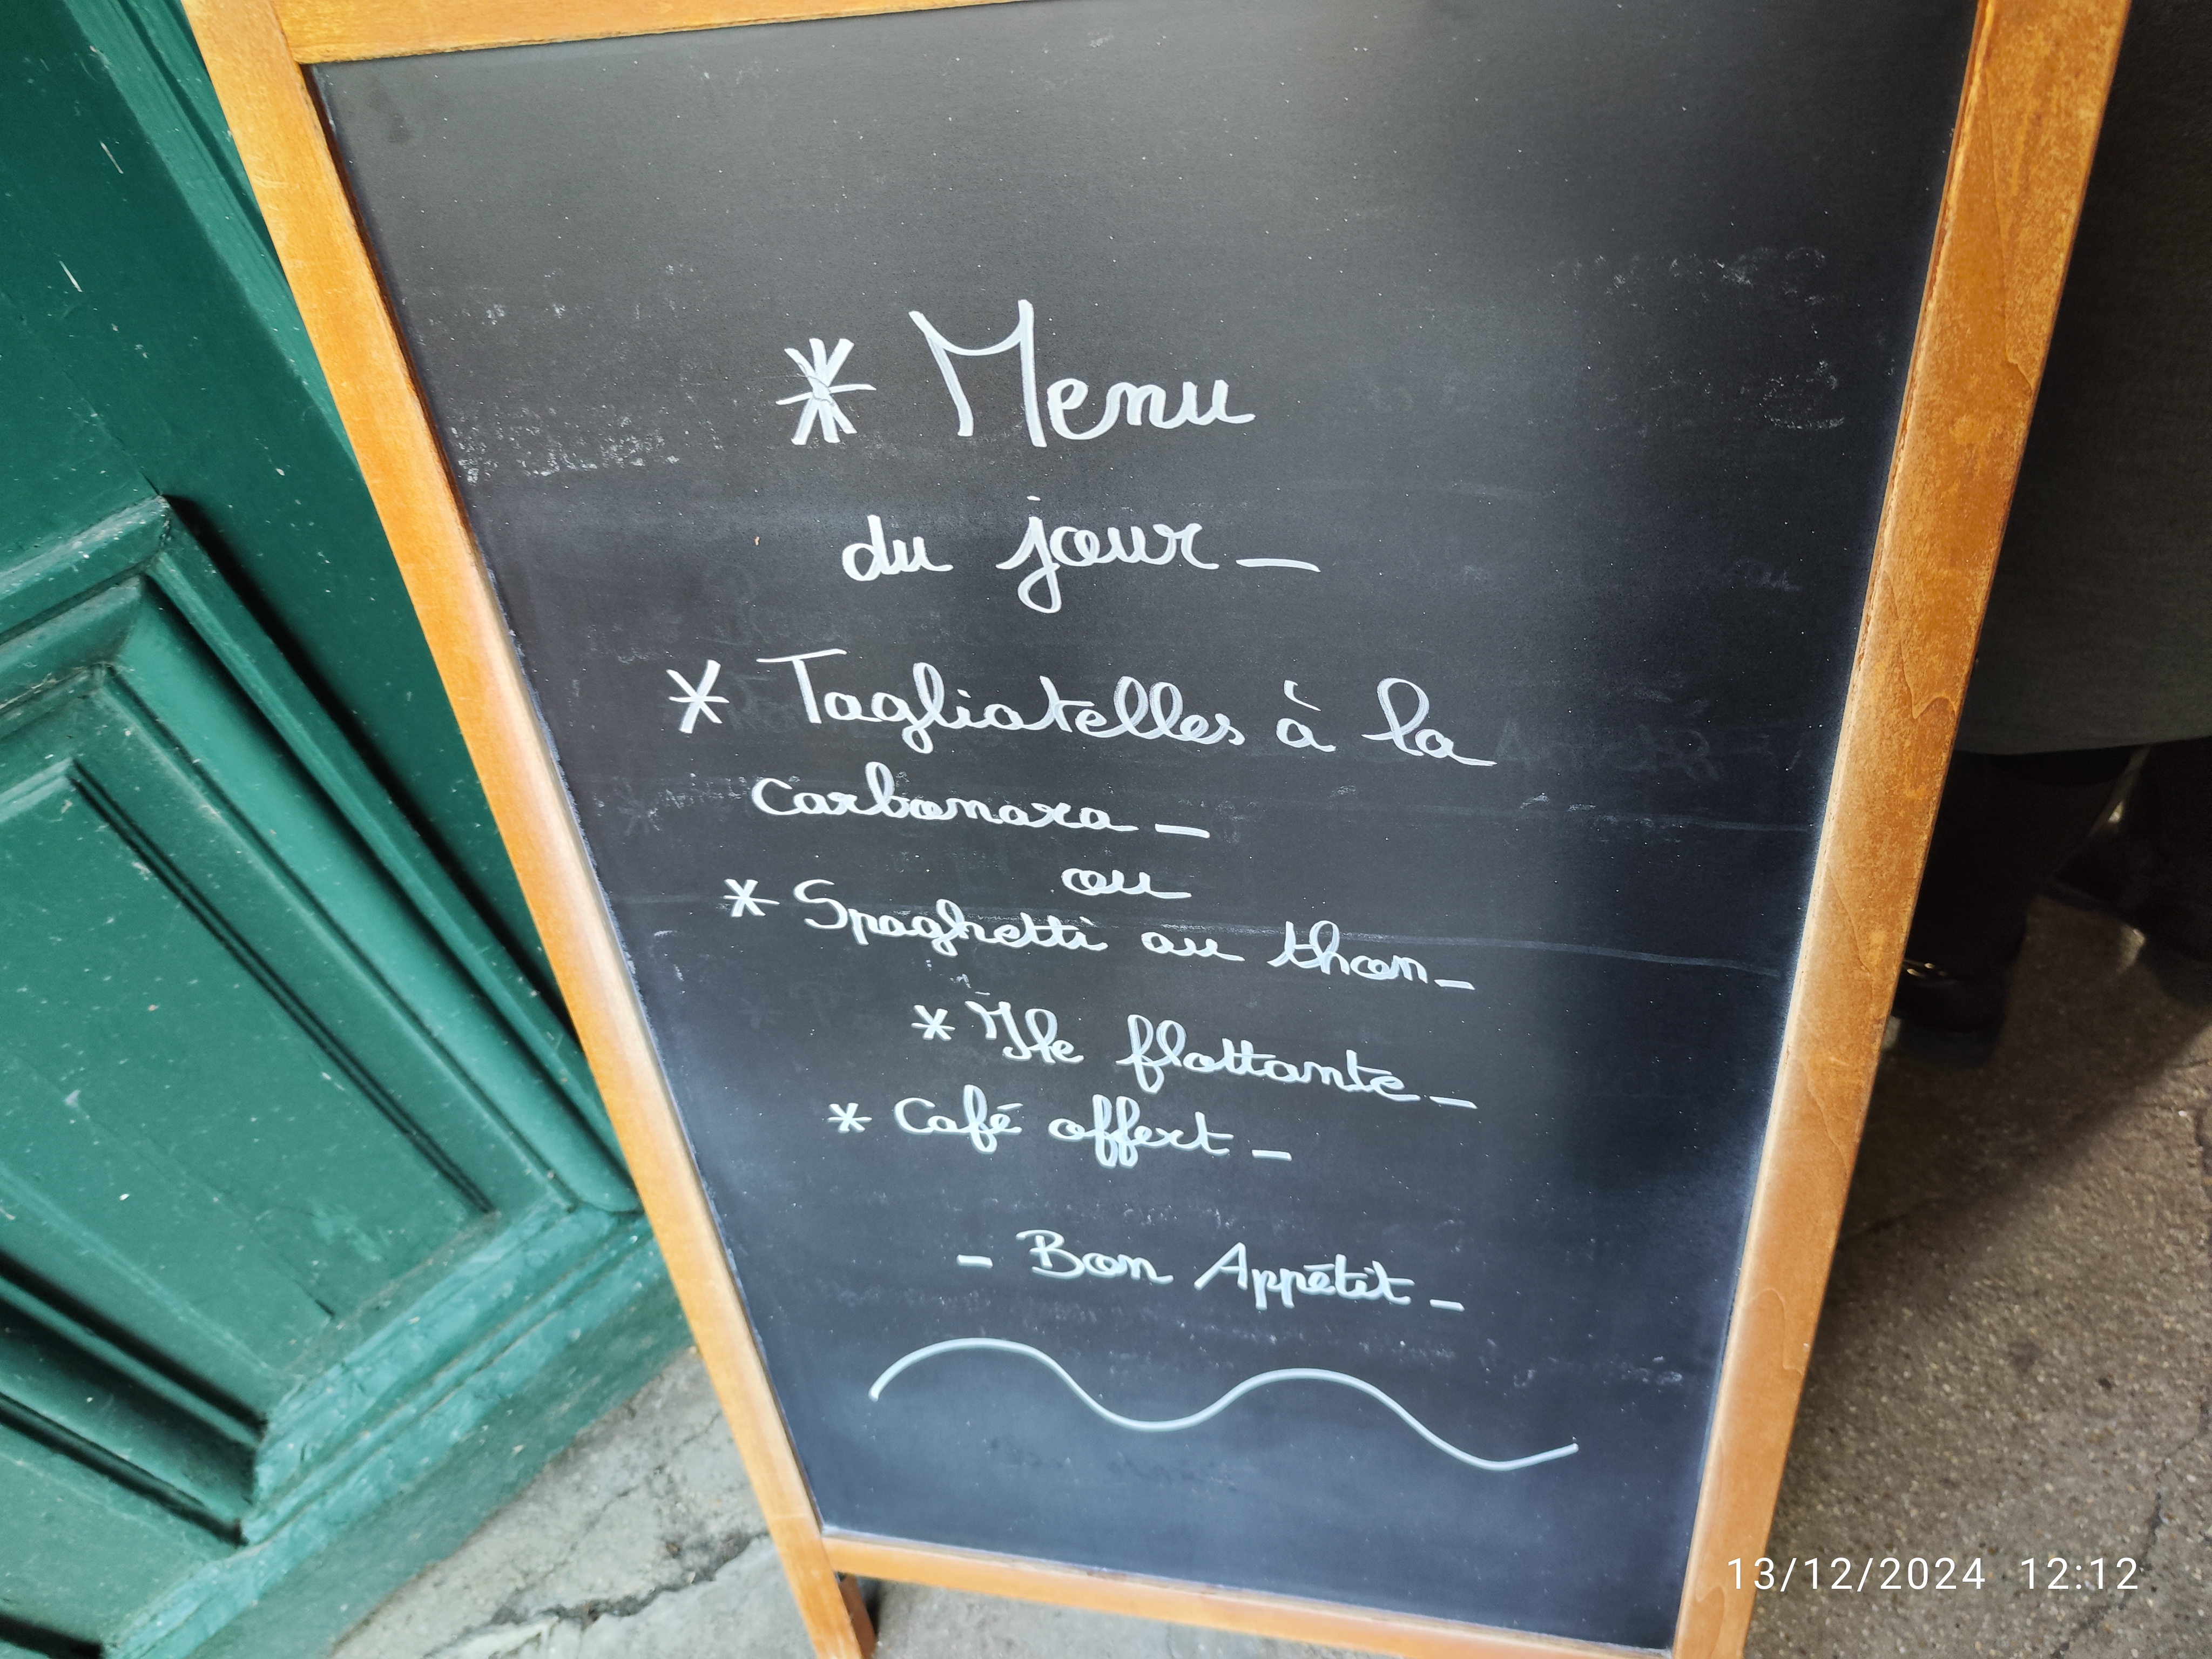 * Menu
du jour_
* Tagliatelles à la
carbonara_
ou
* Spaghetti au thon_
* Île flottante_
* Café offert_
- Bon Appétit_
13/12/2024 12:12